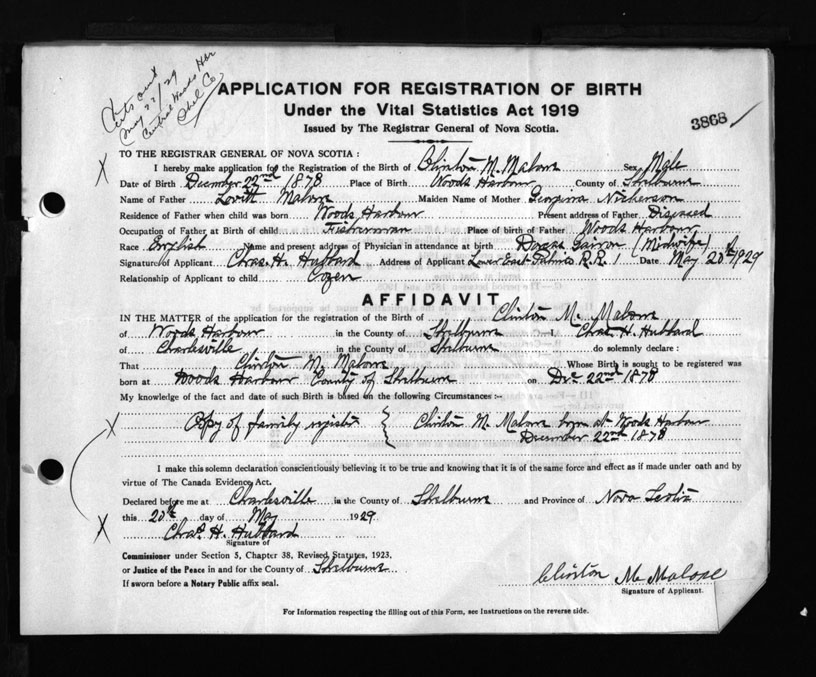 Certs out
May 27/29
Central Woods Har
Shel Co
APPLICATION FOR REGISTRATION OF BIRTH
Under the Vital Statistics Act 1919
Issued by The Registrar General of Nova Scotia.
3868
TO THE REGISTRAR GENERAL OF NOVA SCOTIA :
X I hereby make application for the Registration of the Birth of Clinton M. Malone Sex Male
Date of Birth December 22nd 1878 Place of Birth Woods Harbour County of Shelburne
Name of Father Lovitt Malone Maiden Name of Mother Georgina Nickerson
Residence of Father when child was born Woods Harbour Present address of Father Diseased
Occupation of Father at Birth of child Fisherman Place of birth of Father Woods Harbour
Race English Name and present address of Physician in attendance at birth Dorcas (Midwife)
Signature of Applicant Chas. H. Hubbard Address of Applicant Lower East Pubnico R.R. 1 Date May 20th 1929
Relationship of Applicant to child Cozen
AFFIDAVIT
IN THE MATTER of the application for the registration of the Birth of Clinton M. Malone
of Woods Harbour in the County of Shelburne I, Chas. H. Hubbard
of Charlesville in the County of Shelburne do solemnly declare :
That Clinton M. Malone Whose Birth is sought to be registered was
born at Woods Harbour County of Shelburne on Dec 22nd 1878
My knowledge of the fact and date of such Birth is based on the following Circumstances :-
X Copy of family register { Clinton M. Malone born at Woods Harbour
December 22nd 1878
I make this solemn declaration conscientiously believing it to be true and knowing that it is of the same force and effect as if made under oath and by
virtue of The Canada Evidence Act.
Declared before me at Charlesville in the County of Shelburne and Province of Nova Scotia
this 20th day of May 1929
X Chas. H. Hubbard
Signature of
Commissioner under Section 5, Chapter 38, Revised Statutes, 1923,
or Justice of the Peace in and for the County of Shelburne
If sworn before a Notary Public affix seal.
Clinton M. Malone
Signature of Applicant.
For Information respecting the filling out of this Form, see Instructions on the reverse side.